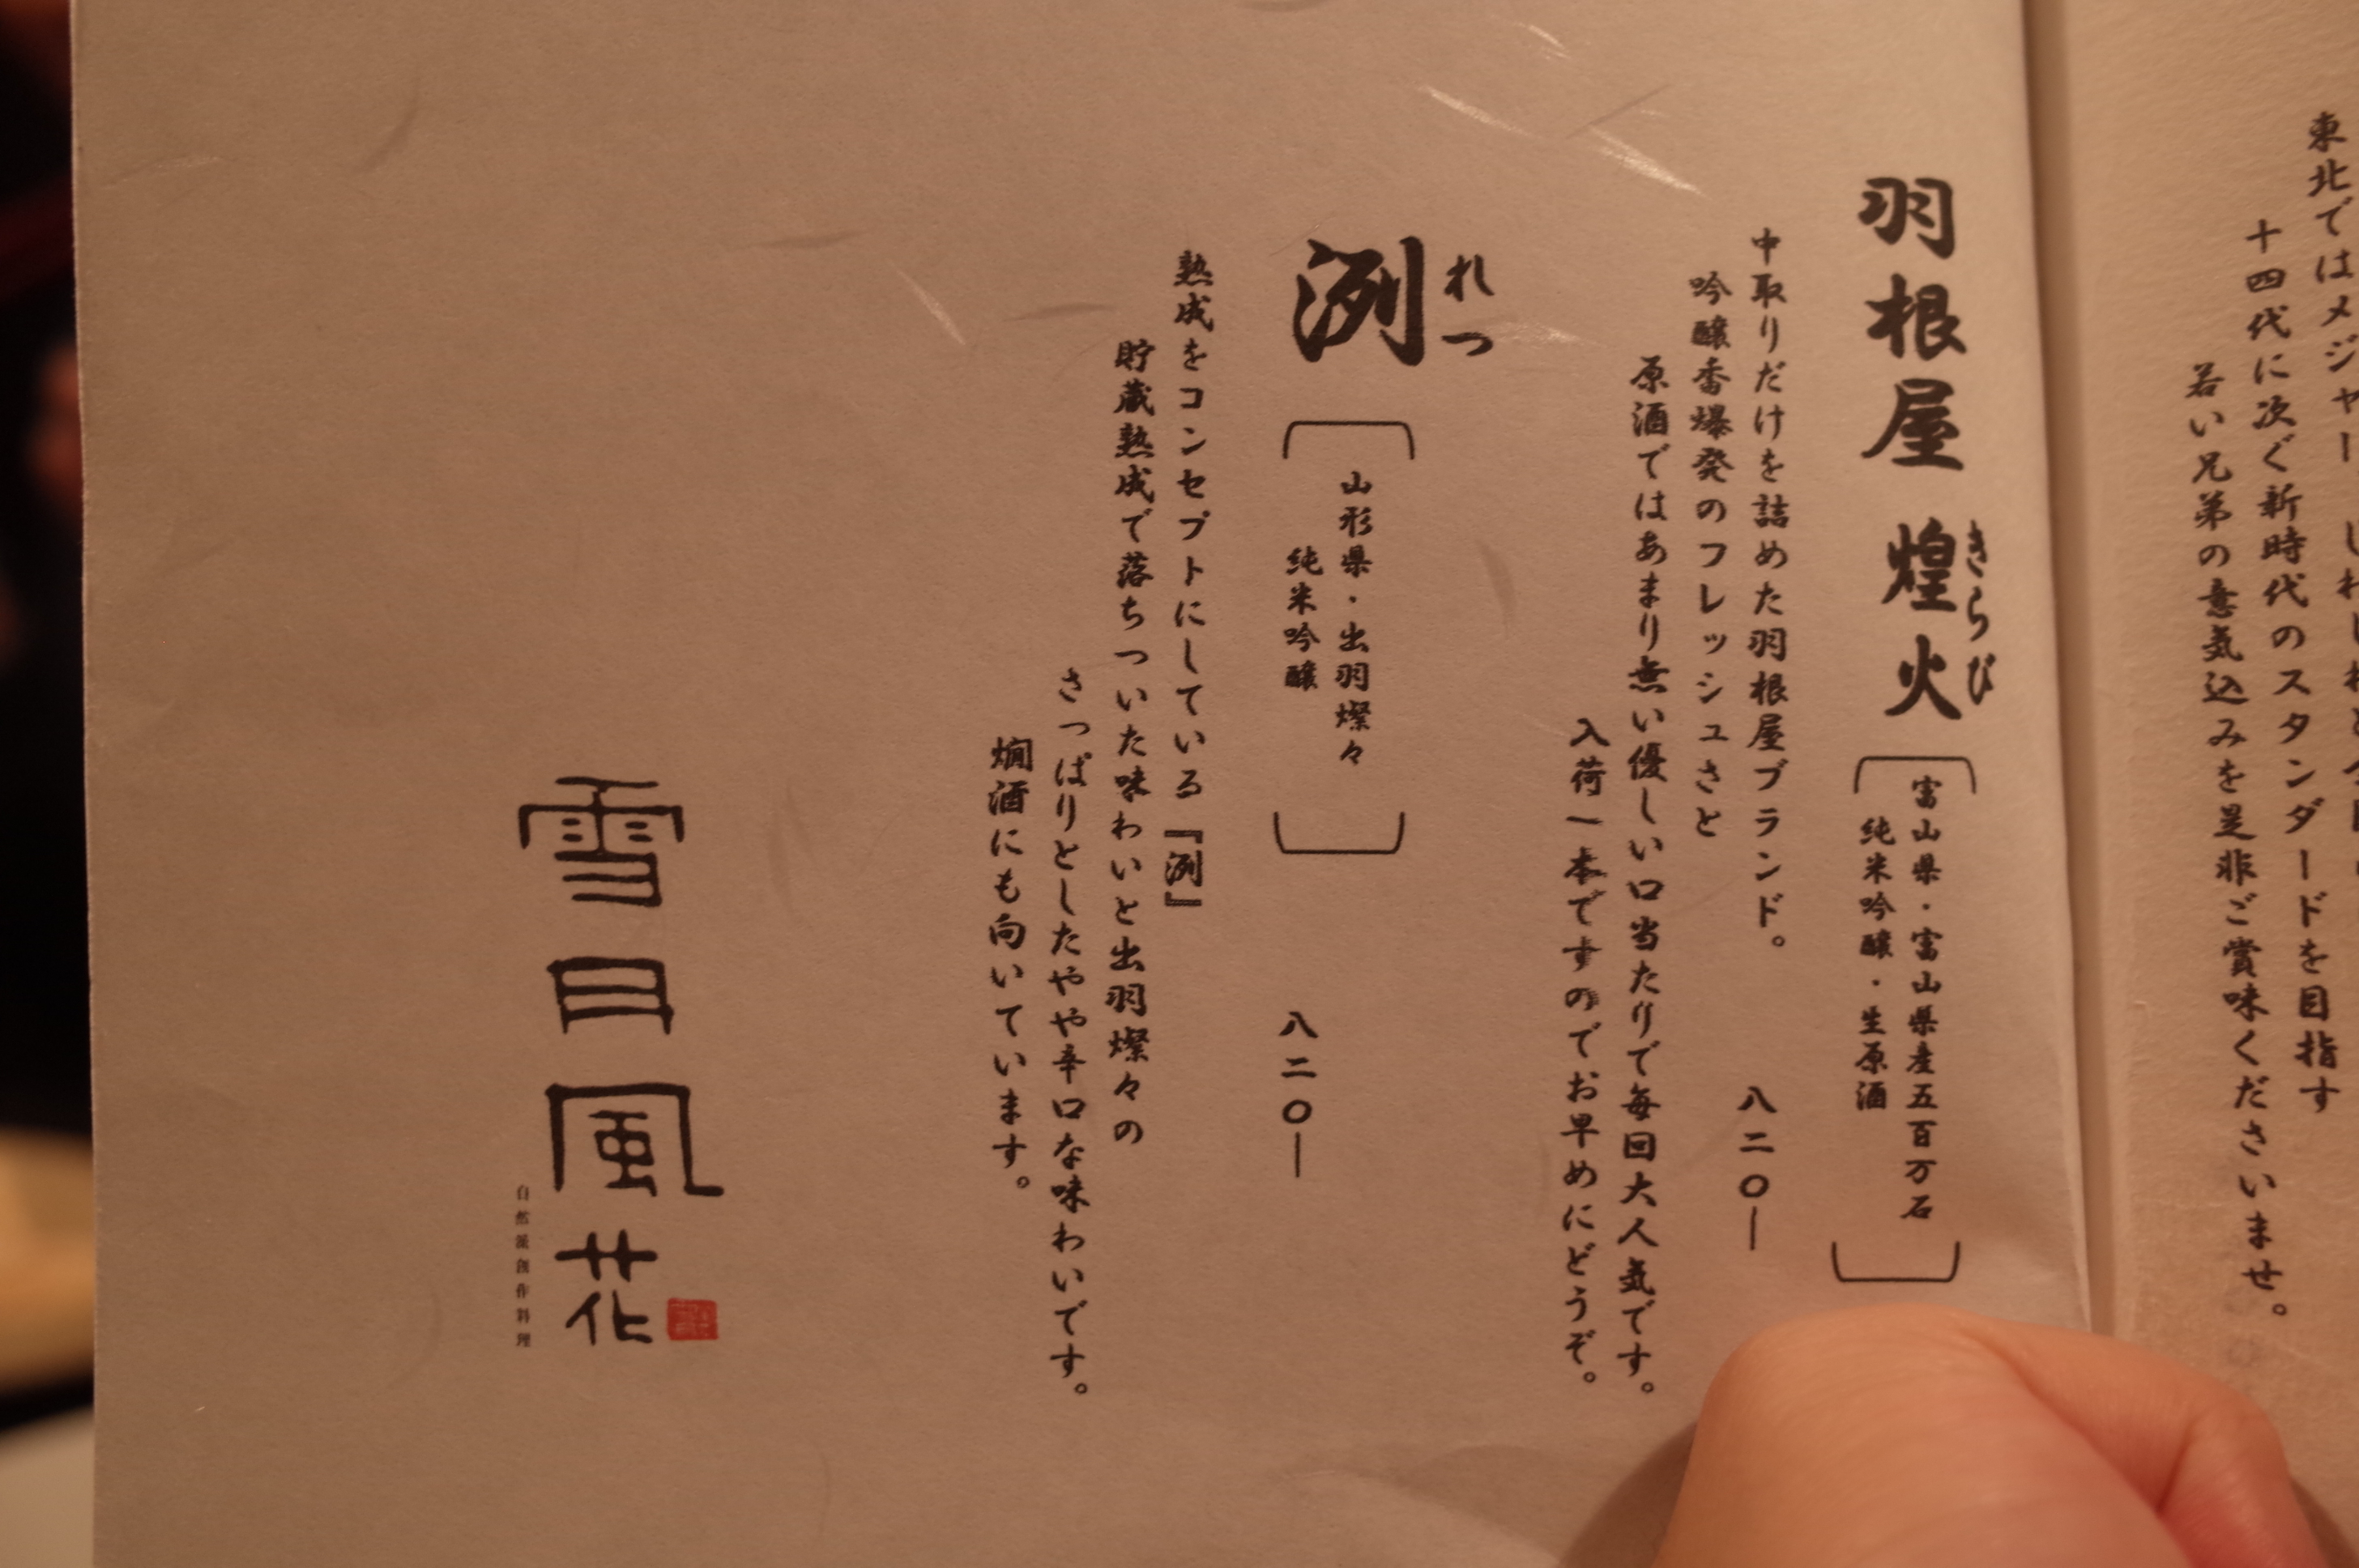 東北ではメジャー
十四代に次ぐ新時代のスタンダードを目指す
若い兄弟の意気込みを是非ご賞味くださいませ。
羽根屋 煌火
きらび
富山県・富山県産五百万石
純米吟醸・生原酒
八二〇―
中取りだけを詰めた羽根屋ブランド。
吟醸香爆発のフレッシュさと
原酒ではあまり無い優しい口当たりで毎回大人気です。
入荷一本ですのでお早めにどうぞ。
洌
れつ
山形県・出羽燦々
純米吟醸
八二〇―
熟成をコンセプトにしている『洌』
貯蔵熟成で落ちついた味わいと出羽燦々の
さっぱりとしたやや辛口な味わいです。
燗酒にも向いています。
雪月風花
自然派創作料理